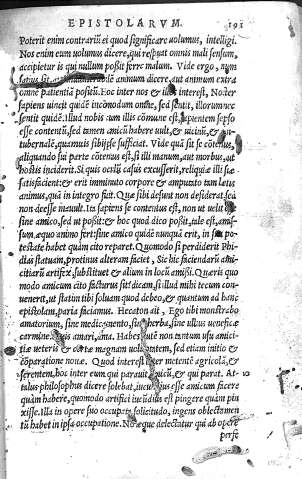 EPISTOLARVM. 191
Poterit enim contrariũ ei quod significare uolumus, intelligi.
Nos enim eum uolumus dicere, qui respuat omnis mali sensum,
accipietur is qui nullum possit ferre malum. Vide ergo, num
satius sit, inuulnerabilẽ animũ dicere, aut animum extra
omnẽ patientiã positũ. Hoc inter nos & illos interest, Noster
sapiens uincit quidẽ incõmodum omne, sed sentit, illorum nec
sentit quidẽ. Illud nobis cum illis cõmune est, sapientem seipso
esse contentũ, sed tamen amicũ habere uult, & uicinũ, & con-
tubernalẽ, quamuis sibi ipse sufficiat. Vide quã sit se cõtentus,
aliquando sui parte cõtentus est, si illi manum, aut morbus, aut
hostis inciderit. Si quis oculũ casus excusserit, reliquiæ illi suæ
satisfaciẽt: & erit imminuto corpore & amputato tam lætus
animus, quã in integro fuit. Quæ sibi desunt non desiderat sed
non deesse mauult. Ita sapiens se contentus est, non ut uelit
sine amico, sed ut possit: & hoc quod dico possit, tale est, amis-
sum, æquo animo fert: sine amico quidẽ nunquã erit, in sua po-
testate habet quàm cito reparet. Quomodo si perdiderit Phi-
dias statuam, protinus alteram faciet, Sic hic faciendarũ ami-
citiarũ artifex, substituet & alium in locũ amissi. Quæris quo
modo amicum cito facturus sit? dicam, si illud mihi tecum con-
uenerit, ut statim tibi soluam quod debeo, & quantum ad hanc
epistolam, paria faciamus. Hecaton ait, Ego tibi monstrabo
amatorium, sine medicamento, sine herba, sine ullius ueneficæ
carmine. Si uis amari, ama. Habet autẽ non tantum usus amici-
tiæ ueteris & certæ magnam uoluptatem, sed etiam initio &
cõparatione nouæ. Quod interest inter metentẽ agricolã, &
serentem, hoc inter eum qui parauit amicũ, & qui parat. At-
talus philosophus dicere solebat, iucundius esse amicum facere
quàm habere, quomodo artifici iucũdius est pingere quàm pin-
xisse. Illa in opere suo occupata solicitudo, ingens oblectamen
tũ habet in ipsa occupatione. Non æque delectatur qui ab opere
perfe